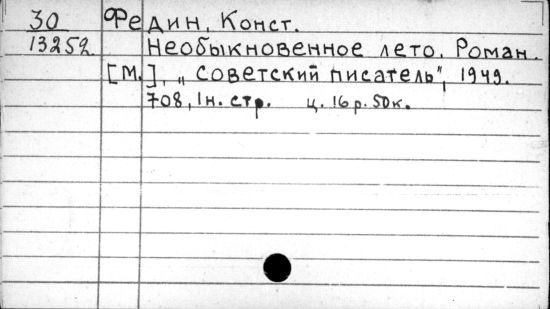 30 Федин, Конст.
13252 Необыкновенное лето. Роман.
[М.], „Советский писатель", 1949.
708, 1н. стр. ц. 16 р. 50к.